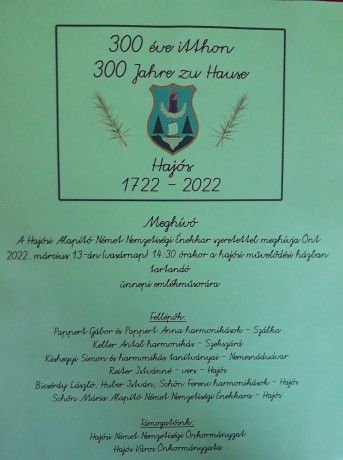 300 éve itthon
300 Jahre zu Hause
Hajós
1722 - 2022
Meghívó
A Hajósi Alapító Német Nemzetiségi Énekkar szeretettel meghívja Önt
2022. március 13-án (vasárnap) 14:30 órakor a hajósi művelődési házban
tartandó
ünnepi emlékműsorára
Fellépők:
Pappert Gábor és Pappert Anna harmonikások - Szálka
Keller Antal harmonikás - Szekszárd
Kishegyi Simon és harmonikás tanítványai - Nemesnádudvar
Reiter Istvánné - vers - Hajós
Bicsérdy László, Huber István, Schön Ferenc harmonikások - Hajós
Schön Mária Alapító Német Nemzetiségi Énekkara - Hajós
Támogatóink:
Hajósi Német Nemzetiségi Önkormányzat
Hajós Város Önkormányzata